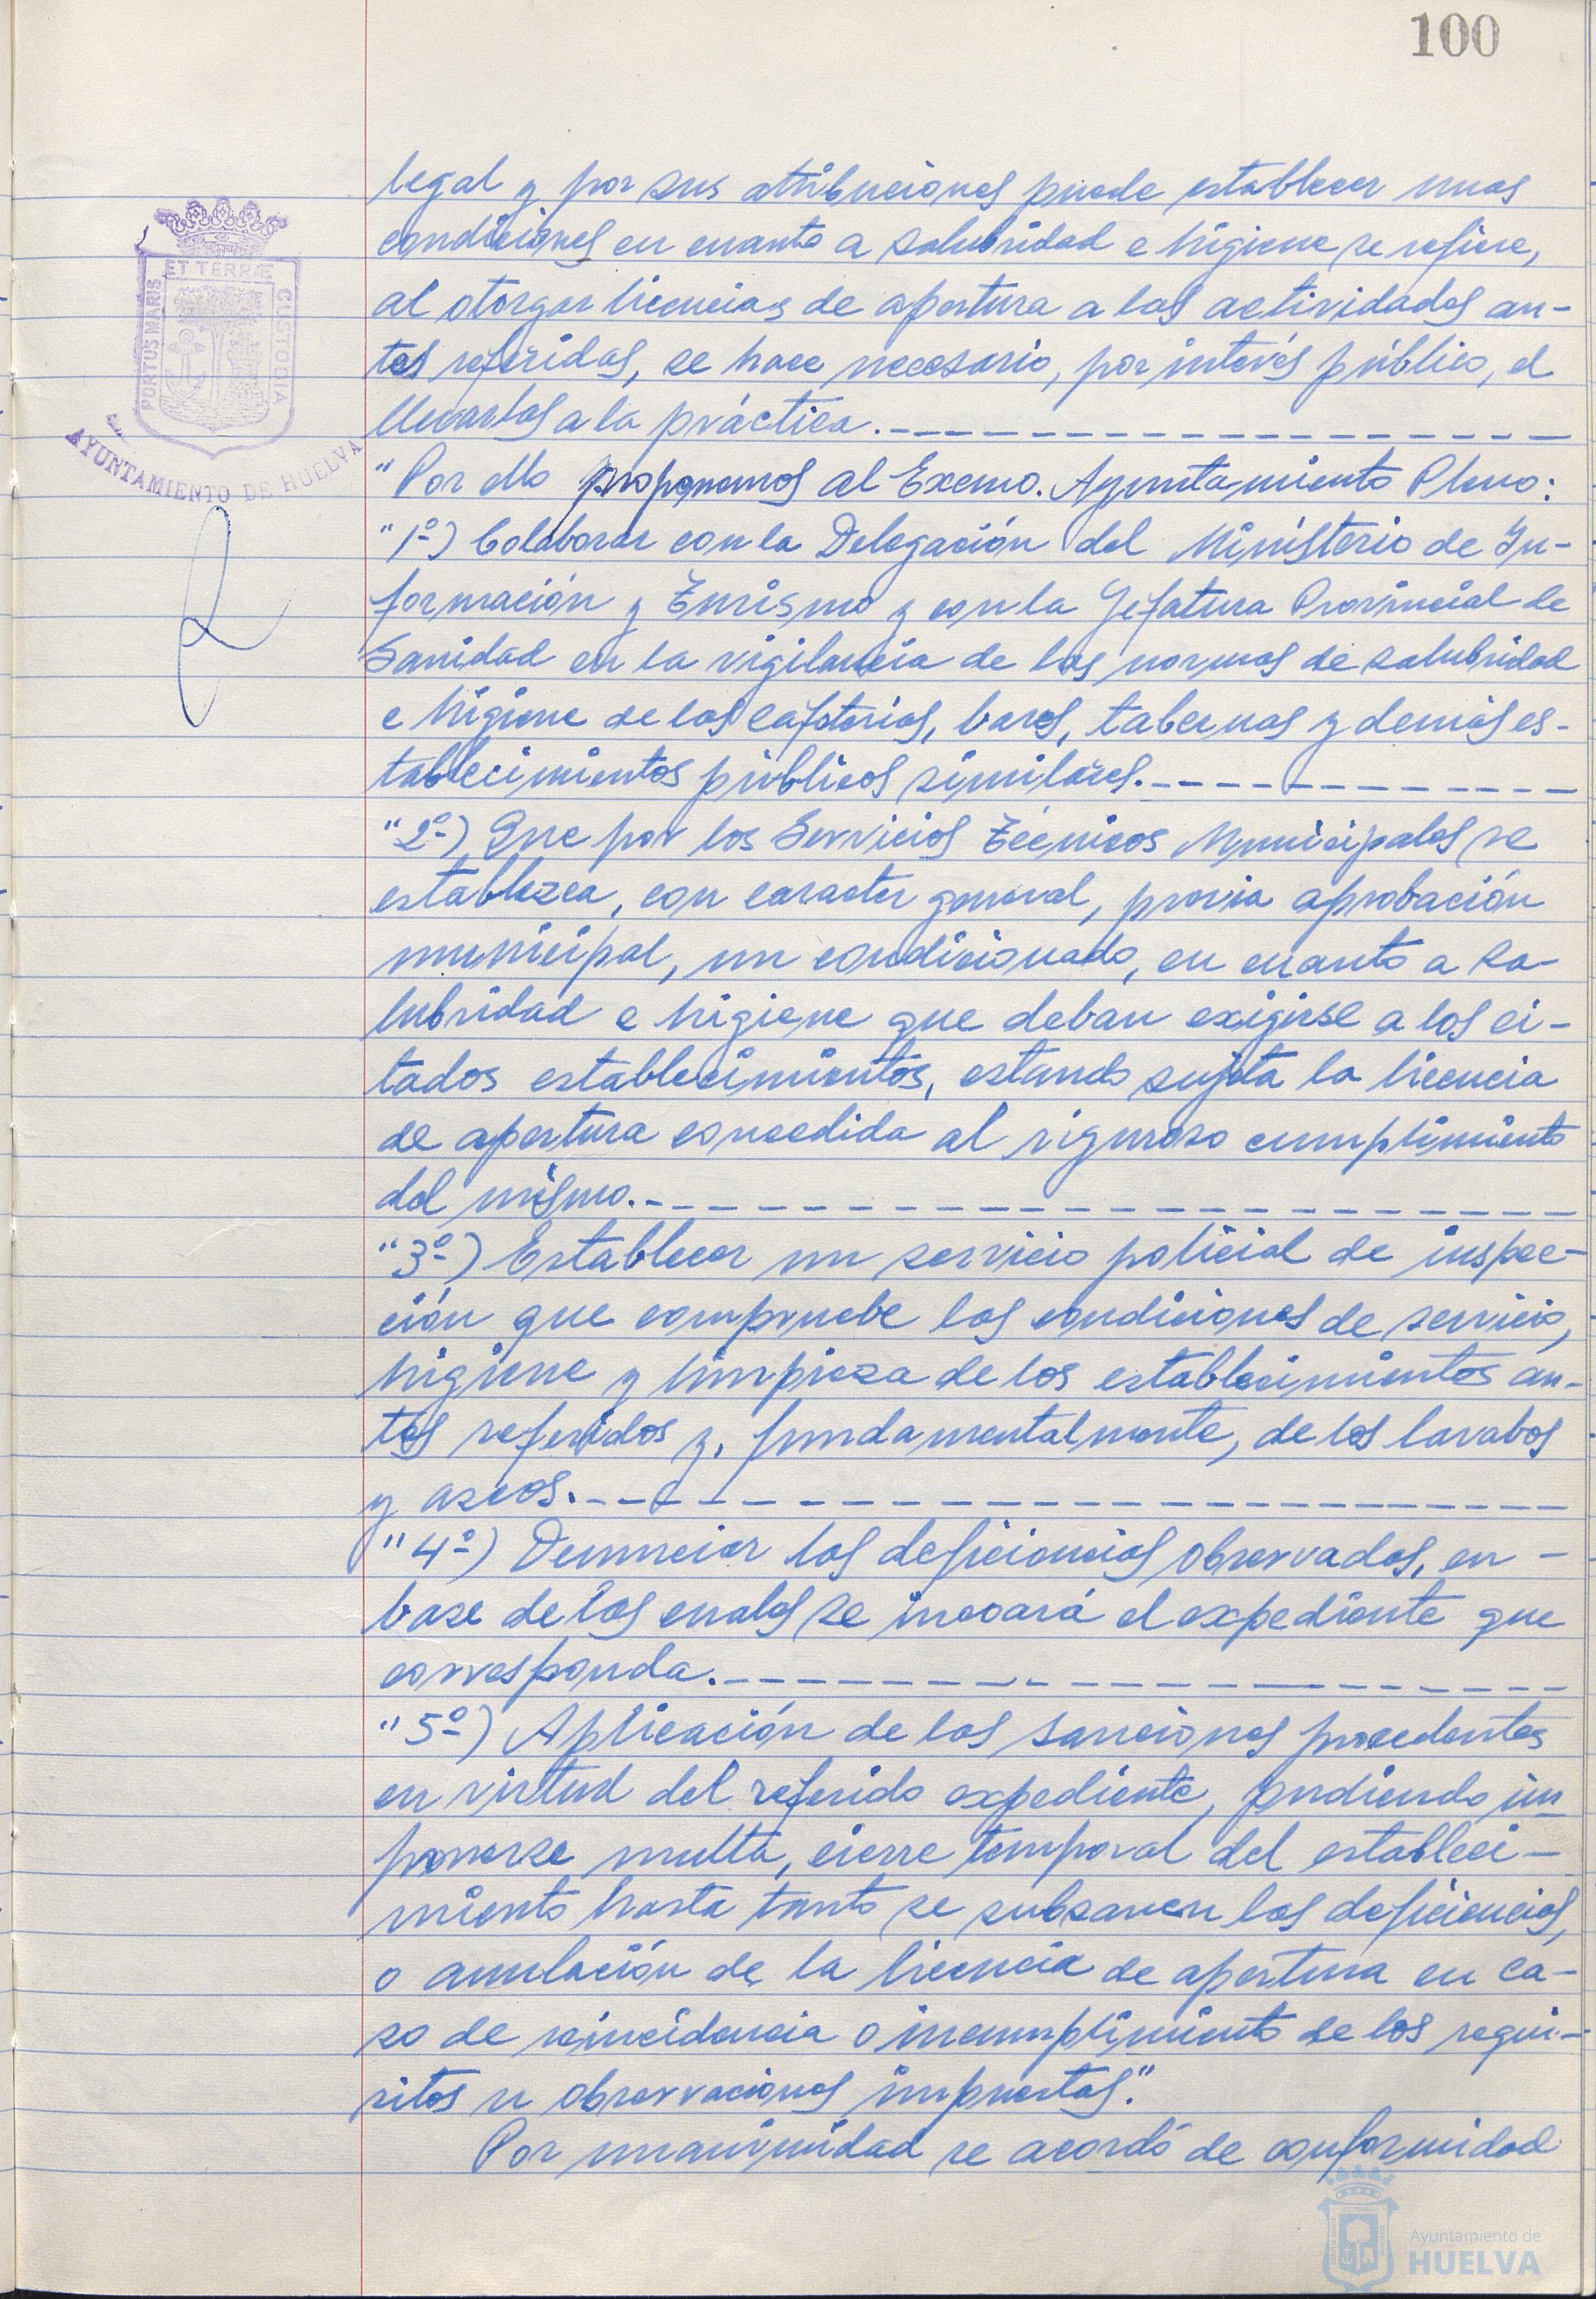 100
legal y por sus atribuciones puede establecer unas
condiciones en cuanto a salubridad e higiene se refiere,
al otorgar licencias de apertura a las actividades an-
tes referidas, se hace necesario, por interés público, el
llevarlas a la práctica.
ET TERRÆ
PORTUS MARIS
CUSTODIA
AYUNTAMIENTO DE HUELVA
"Por ello proponemos al Excmo. Ayuntamiento Pleno:
"1º) Colaborar con la Delegación del Ministerio de In-
formación y Turismo y con la Jefatura Provincial de
Sanidad en la vigilancia de las normas de salubridad
e higiene de las cafeterias, bares, tabernas y demás es-
tablecimientos públicos similares.
"2º) Que por los Servicios Técnicos Municipales se
establezca, con caracter general, previa aprobación
municipal, un condicionado, en cuanto a sa-
lubridad e higiene que deban exigirse a los ci-
tados establecimientos, estando sujeta la licencia
de apertura concedida al riguroso cumplimiento
del mismo.
"3º) Establecer un servicio policial de inspec-
ción que compruebe las condiciones de servicio,
higiene y limpieza de los establecimientos an-
tes referidos y, fundamentalmente, de los lavabos
y aseos.
"4º) Denunciar las deficiencias observadas, en -
base de las cuales se incoará el expediente que
corresponda.
"5º) Aplicación de las sanciones procedentes
en virtud del referido expediente, pudiendo im-
ponerse multa, cierre temporal del estableci-
miento hasta tanto se subsanen las deficiencias,
o anulación de la licencia de apertura en ca-
so de reincidencia o incumplimiento de los requi-
sitos u observaciones impuestas."
Por unanimidad se acordó de conformidad
Ayuntamiento de
HUELVA